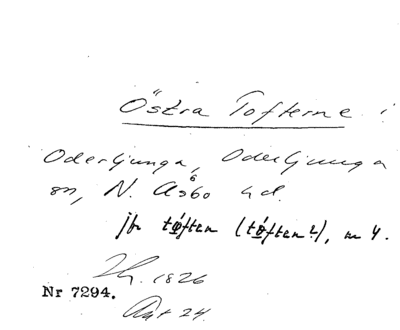 Östra Tofterne i
Oderljunga, Oderljunga
sn, N. Åsbo hd.
jfr tøften (tøften?), m 4.
1826
Nr 7294.
Akt 24.